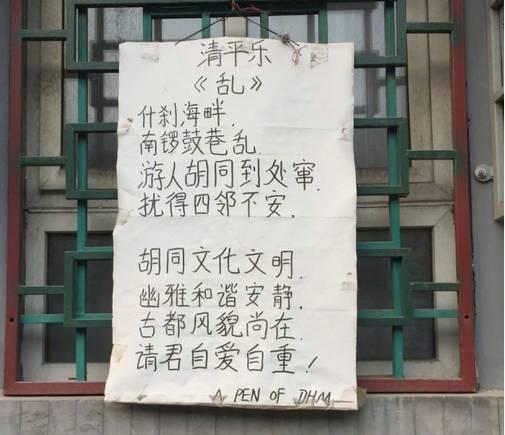 清平乐
《乱》
什刹海畔.
南锣鼓巷乱.
游人胡同到处窜.
扰得四邻不安.
胡同文化文明.
幽雅和谐安静.
古都风貌尚在.
请君自爱自重!
A PEN OF DHM